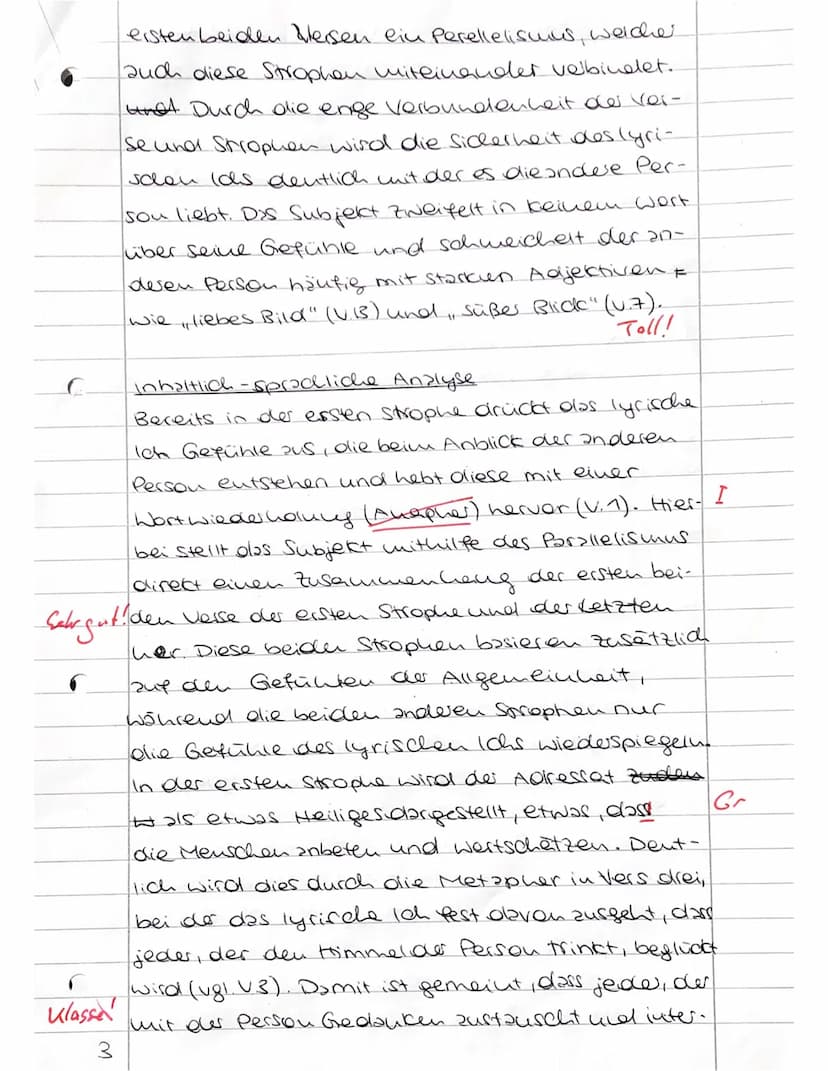 ersten beiden Versen ein Parellelismus, welcher
auch diese Strophen miteinander verbindet.
Durch die enge Verbundenheit der Ver-
se und Strophen wird die Sicherheit des lyri-
schen Ichs deutlich mit der es die andere Per-
son liebt. Das Subjekt zweifelt in keinem Wort
über seine Gefühle und schmeichelt der an-
deren Person häufig mit starken Adjektiven
wie „liebes Bild" (V.13) und „süßer Blick" (V.7).
Toll!
Inhaltlich-sprachliche Analyse
Bereits in der ersten Strophe drückt das lyrische
Ich Gefühle aus, die beim Anblick der anderen
Person entstehen und hebt diese mit einer
Wortwiederholung (Anapher) hervor (V.1). Hier- I
bei stellt das Subjekt mithilfe des Parallelismus
direkt einen Zusammenhang der ersten bei-
Sehr gut! den Verse der ersten Strophe und der Letzten
her. Diese beiden Strophen basieren zusätzlich
auf den Gefühlen der Allgemeinheit,
während die beiden anderen Strophen nur
die Gefühle des lyrischen Ichs wiederspiegeln.
In der ersten Strophe wird der Adressat
als etwas Heiliges dargestellt, etwas, dass Gr
die Menschen anbeten und wertschätzen. Deut-
lich wird dies durch die Metapher in Vers drei,
bei der das lyrische Ich fest davon ausgeht, dass
jeder, der den Himmel der Person trinkt, beglückt
wird (vgl. V.3). Damit ist gemeint, dass jeder, der
Klasse! mit der Person Gedanken austauscht und inter-
3